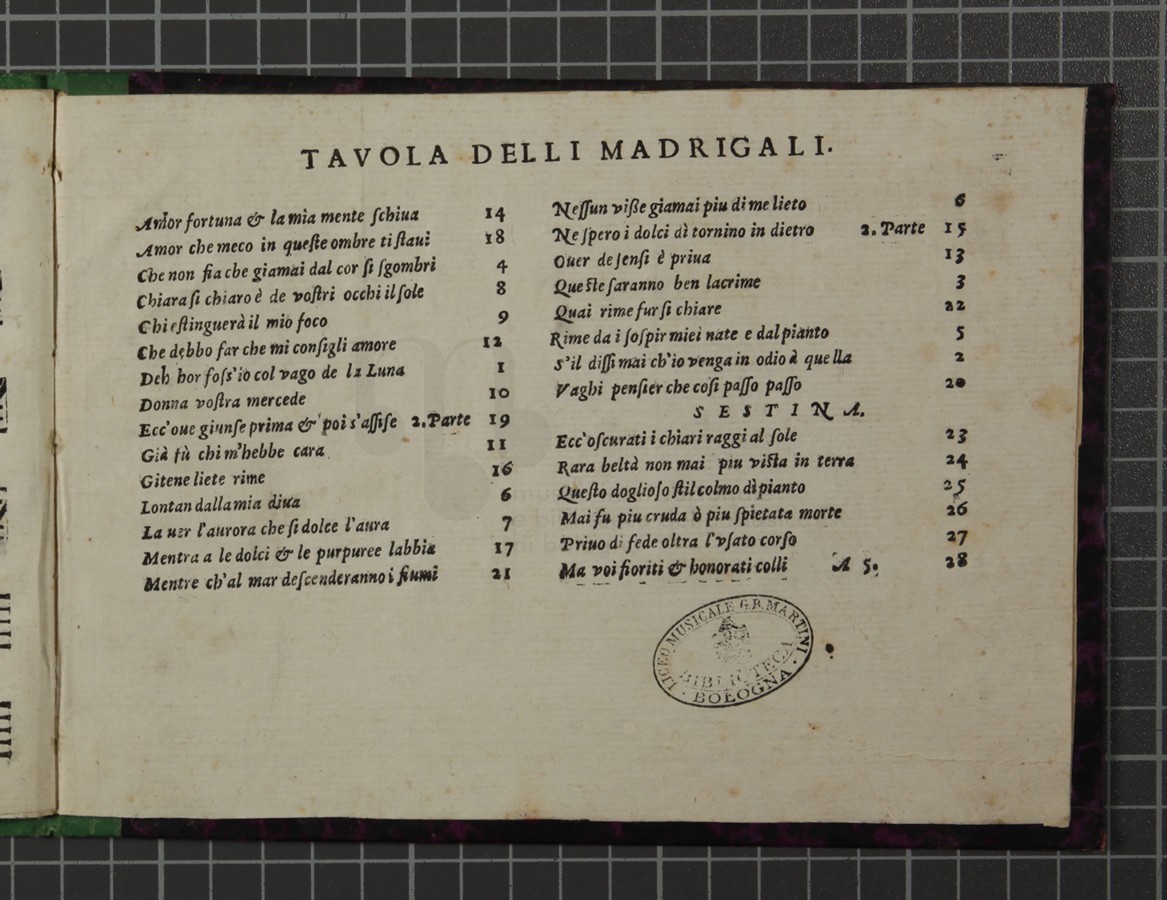 TAVOLA DELLI MADRIGALI.
Amor fortuna & la mia mente ſchiua 14
Amor che meco in queſte ombre ti ſtaui 18
Che non fia che giamai dal cor ſi ſgombri 4
Chiara ſi chiaro è de voſtri occhi il ſole 8
Chi eſtinguerà il mio foco 9
Che debbo far che mi conſigli amore 12
Deh hor foſs'io col vago de la Luna 1
Donna voſtra mercede 10
Ecc'oue giunſe prima & poi s'aſſiſe 2. Parte 19
Già fù chi m'hebbe cara 11
Gitene liete rime 16
Lontan dalla mia diua 6
La ver l'aurora che ſi dolce l'aura 7
Mentra a le dolci & le purpuree labbia 17
Mentre ch'al mar deſcenderanno i fiumi 21
Neſſun viße giamai piu di me lieto 6
Ne ſpero i dolci dì tornino in dietro 2. Parte 15
Ouer de ſenſi è priua 13
Queſte ſaranno ben lacrime 3
Quai rime fur ſi chiare 22
Rime da i ſoſpir miei nate e dal pianto 5
S'il diſſi mai ch'io venga in odio à quella 2
Vaghi penſier che coſi paſſo paſſo 20
SESTINA.
Ecc'oſcurati i chiari raggi al ſole 23
Rara beltà non mai piu viſta in terra 24
Queſto doglioſo ſtil colmo di pianto 25
Mai fu piu cruda ò piu ſpietata morte 26
Priuo di fede oltra l'vſato corſo 27
Ma voi fioriti & honorati colli A 5. 28
LICEO MUSICALE G.B. MARTINI
BIBLIOTECA
BOLOGNA